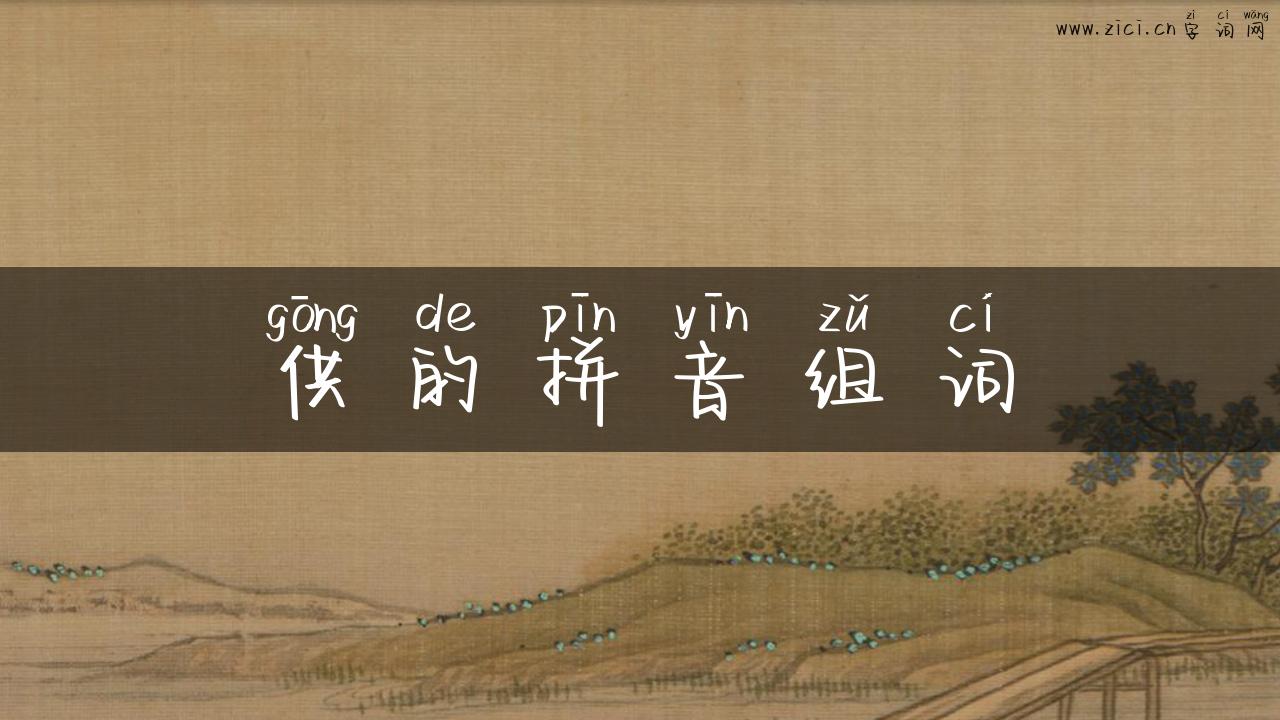 zì cí wǎng
www.zici.cn 字词网
gōng de pīn yīn zǔ cí
供的拼音组词